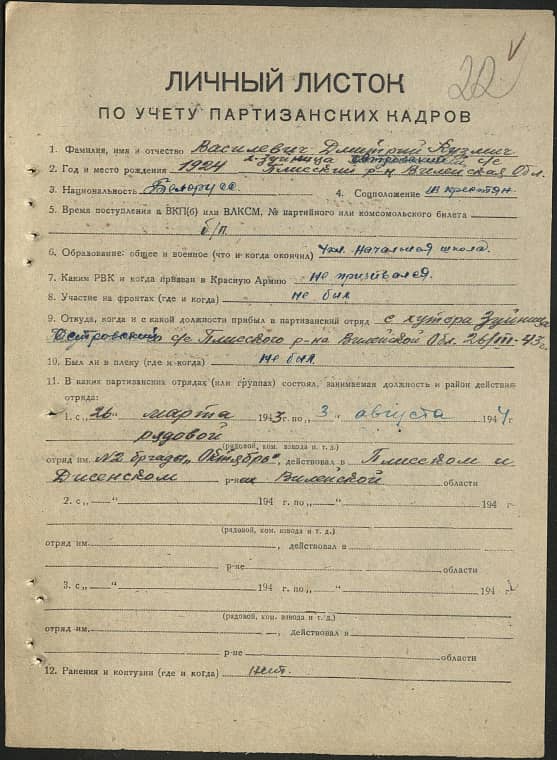 22
ЛИЧНЫЙ ЛИСТОК
ПО УЧЕТУ ПАРТИЗАНСКИХ КАДРОВ
1. Фамилия, имя и отчество Василевич Дмитрий Кузмич
х-Зуйница Островский с/с
2. Год и место рождения 1924 Плисский р-н Вилейская Обл.
3. Национальность Белорус 4. Соцположение из крестян
5. Время поступления в ВКП(б) или ВЛКСМ, № партийного или комсомольского билета
б/п
6. Образование: общее и военное (что и когда окончил) 4кл. Начальная школа.
7. Каким РВК и когда призван в Красную Армию не призывался.
8. Участие на фронтах (где и когда) не был
9. Откуда, когда и с какой должности прибыл в партизанский отряд с хутора Зуйница
Островский с/с Плисского р-на Вилейской Обл. 26/III-43 г.
10. Был ли в плену (где и когда) не был
11. В каких партизанских отрядах (или группах) состоял, занимаемая должность и район действия
отряда:
1. с „26“ марта 1943 г. по „3“ августа 1944 г
рядовой
(рядовой, ком. взвода и т. д.)
отряд им. №2 бргады „Октябрь“, действовал в Плисском и
Дисенском р-нах Вилейской области
2. с „ “ 194 г. по „ “ 194 г
(рядовой, ком. взвода и т. д.)
отряд им. , действовал в
р-не области
3. с „ “ 194 г. по „ “ 194 г
(рядовой, ком. взвода и т. д.)
отряд им. , действовал в
р-не области
12. Ранения и контузии (где и когда) нет.